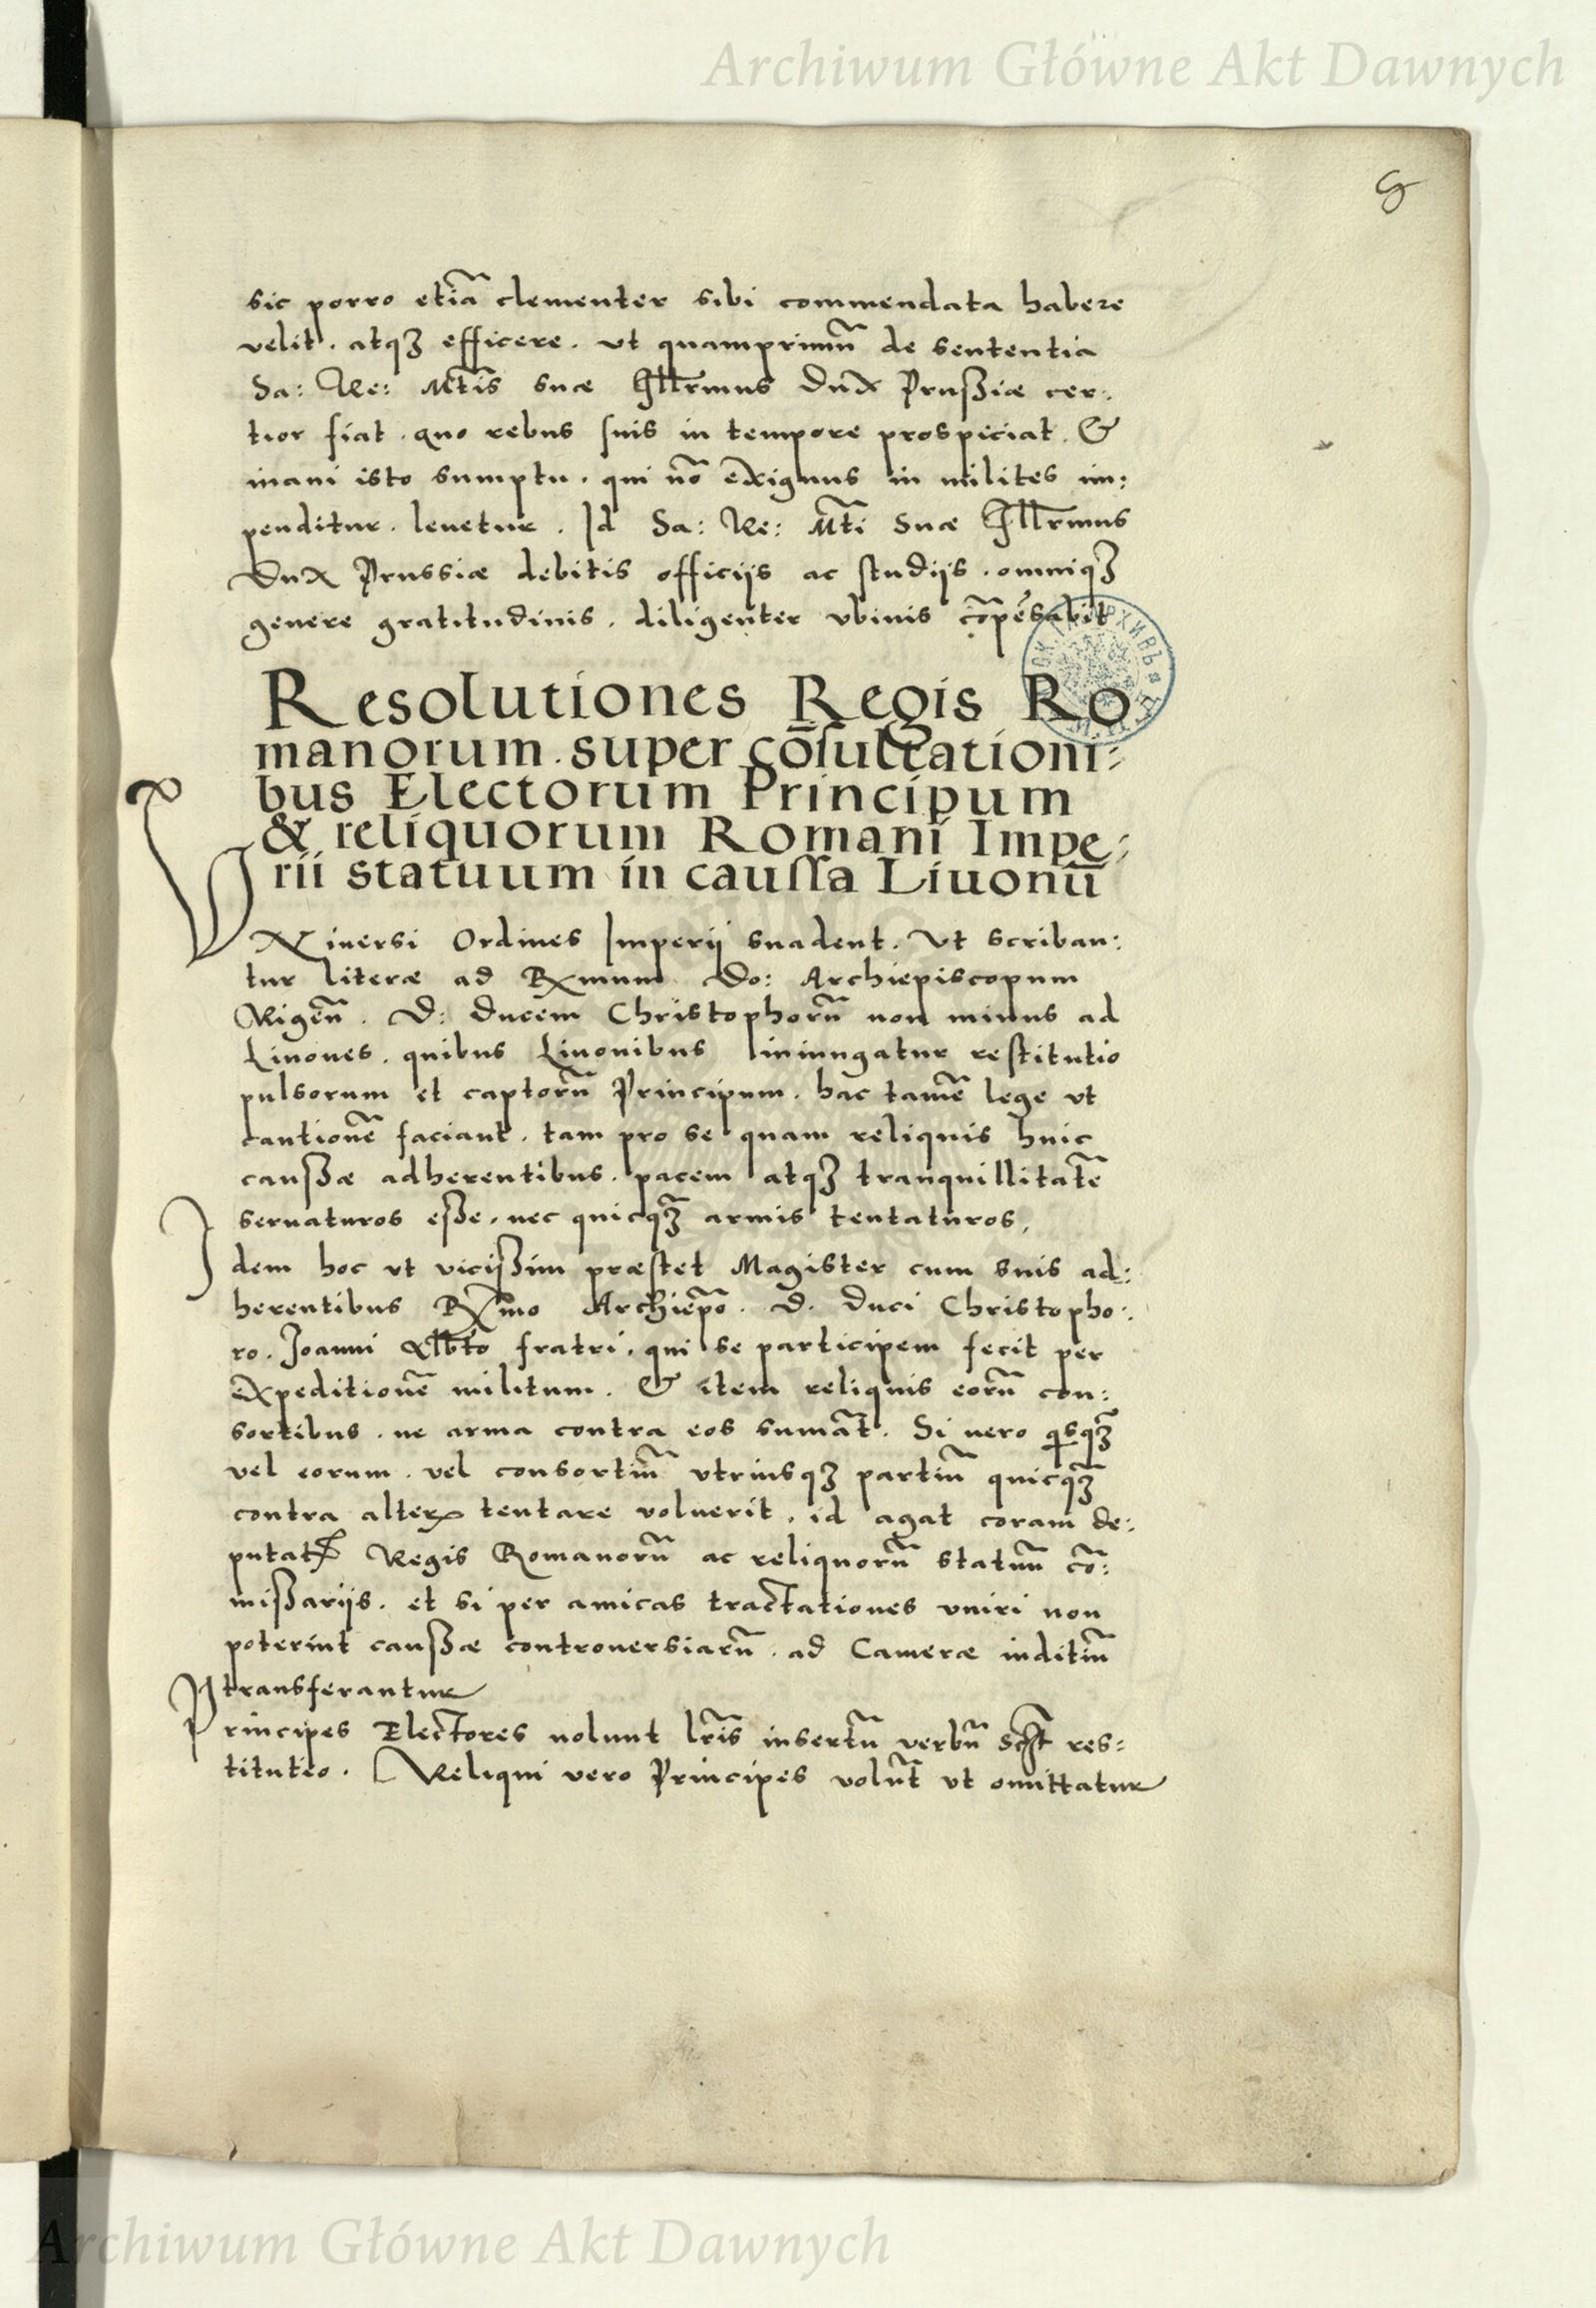 Archiwum Główne Akt Dawnych
8
sic porro etiã clementer sibi commendata habere
velit. atqꝫ efficere. ut quamprimũ de sententia
Sa: Re: Mtis suæ Illrmus Dux Prußiæ cer:
tior fiat. quo rebus suis in tempore prospiciat. &
inani isto sumptu. qui nõ exiguus in milites im:
penditur. leuetur. Id Sa: Re: Mti Suæ Illrmus
Dux Prussiæ debitis officijs ac studijs. omniqꝫ
genere gratitudinis. diligenter ubiuis cõpẽsabit
Resolutiones Regis Ro
manorum. super cõsultationi:
bus Electorum Principum
& reliquorum Romani Impe:
rii statuum in caussa Liuonũ
Vniuersi Ordines Imperij suadent. Ut scriban:
tur literæ ad Rxmum Do: Archiepiscopum
Rigeñ. D: Ducem Christophorũ non minus ad
Liuones. quibus Liuonibus iniungatur restitutio
pulsorum et captorũ Principum. hac tamẽ lege ut
cautionẽ faciant. tam pro se quam reliquis huic
caußæ adherentibus. pacem atqꝫ tranquillitatẽ
seruaturos eße. nec quicqꝫ̃ armis tentaturos,
Idem hoc ut vicißim præstet Magister cum suis ad:
herentibus Rxmo Archiepõ. D. Duci Christopho:
ro. Joanni Albto fratri. qui se participem fecit per
expeditionẽ militum. & item reliquis eorũ con:
sortibus. ne arma contra eos sumãt. Si uero qisqꝫ̃
vel eorum. vel consortiũ utriusqꝫ partiũ quicqꝫ̃
contra alterꝝ tentare voluerit. id agat coram de:
putatꝭ Regis Romanorũ ac reliquorũ statuũ cõ:
mißarijs. et si per amicas tractationes uniri non
poterint caußæ controuersiarũ. ad Cameræ iuditiũ
transferantur
Principes Electores uolunt lr̃is insertũ verbũ res:
titutio. Reliqui vero Principes volũt ut omittatur
Archiwum Główne Akt Dawnych